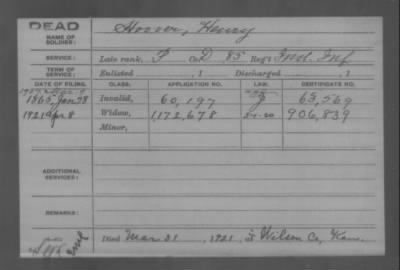 DEAD
NAME OF SOLDIER: Hoover, Henry
SERVICE: Late rank, P Co. D 85 Reg't Ind. Inf
TERM OF SERVICE: Enlisted , 1 Discharged , 1
DATE OF FILING. CLASS. APPLICATION NO. LAW. CERTIFICATE NO.
1865 Jan 28 Invalid, 60,197 63,569
1921 Apr 8 Widow, 1,172,678 5-1-20 906,839
Minor,
ADDITIONAL SERVICES:
REMARKS:
Died Mar 31 , 1921, at Wilson Co, Kan.